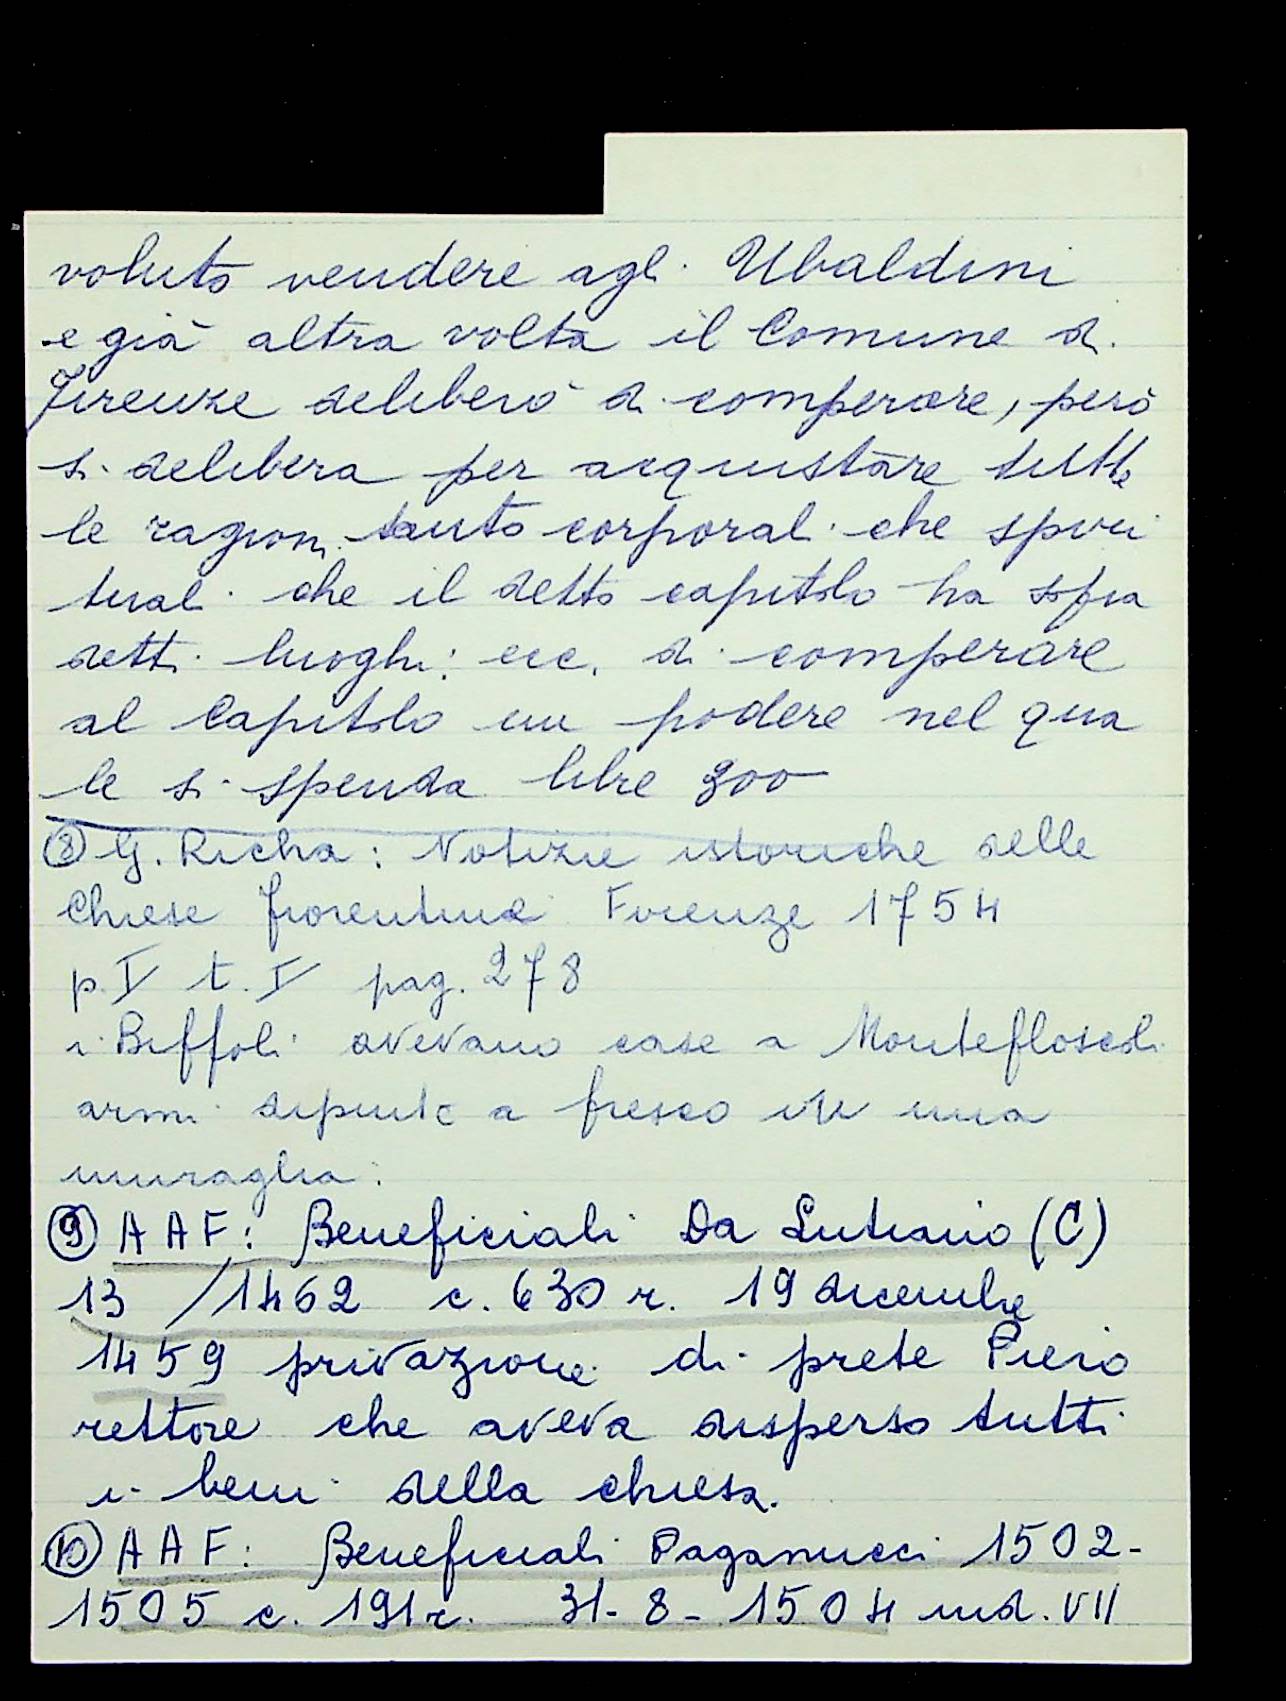 voluto vendere agli Ubaldini
e già altra volta il Comune di
Firenze deliberò di comperare, però
si delibera per acquistare tutte
le ragioni tanto corporali che spiri
tuali che il detto capitolo ha sopra
detti luoghi: ecc. di comperare
al Capitolo un podere nel qua
le si spenda libre 300
⑧ G. Richa: Notizie istoriche delle
Chiese fiorentine Firenze 1754
p. V t. V pag. 278
i Biffoli avevano case a Montefloscoli
armi dipinte a fresco in una
muraglia.
⑨ AAF: Beneficiali Da Lutiano (C)
13 /1462 c. 630 r. 19 dicembre
1459 privazione di prete Piero
rettore che aveva disperso tutti
i beni della chiesa.
⑩ AAF: Beneficiali Paganucci 1502-
1505 c. 191 r. 31-8-1504 ind. VII